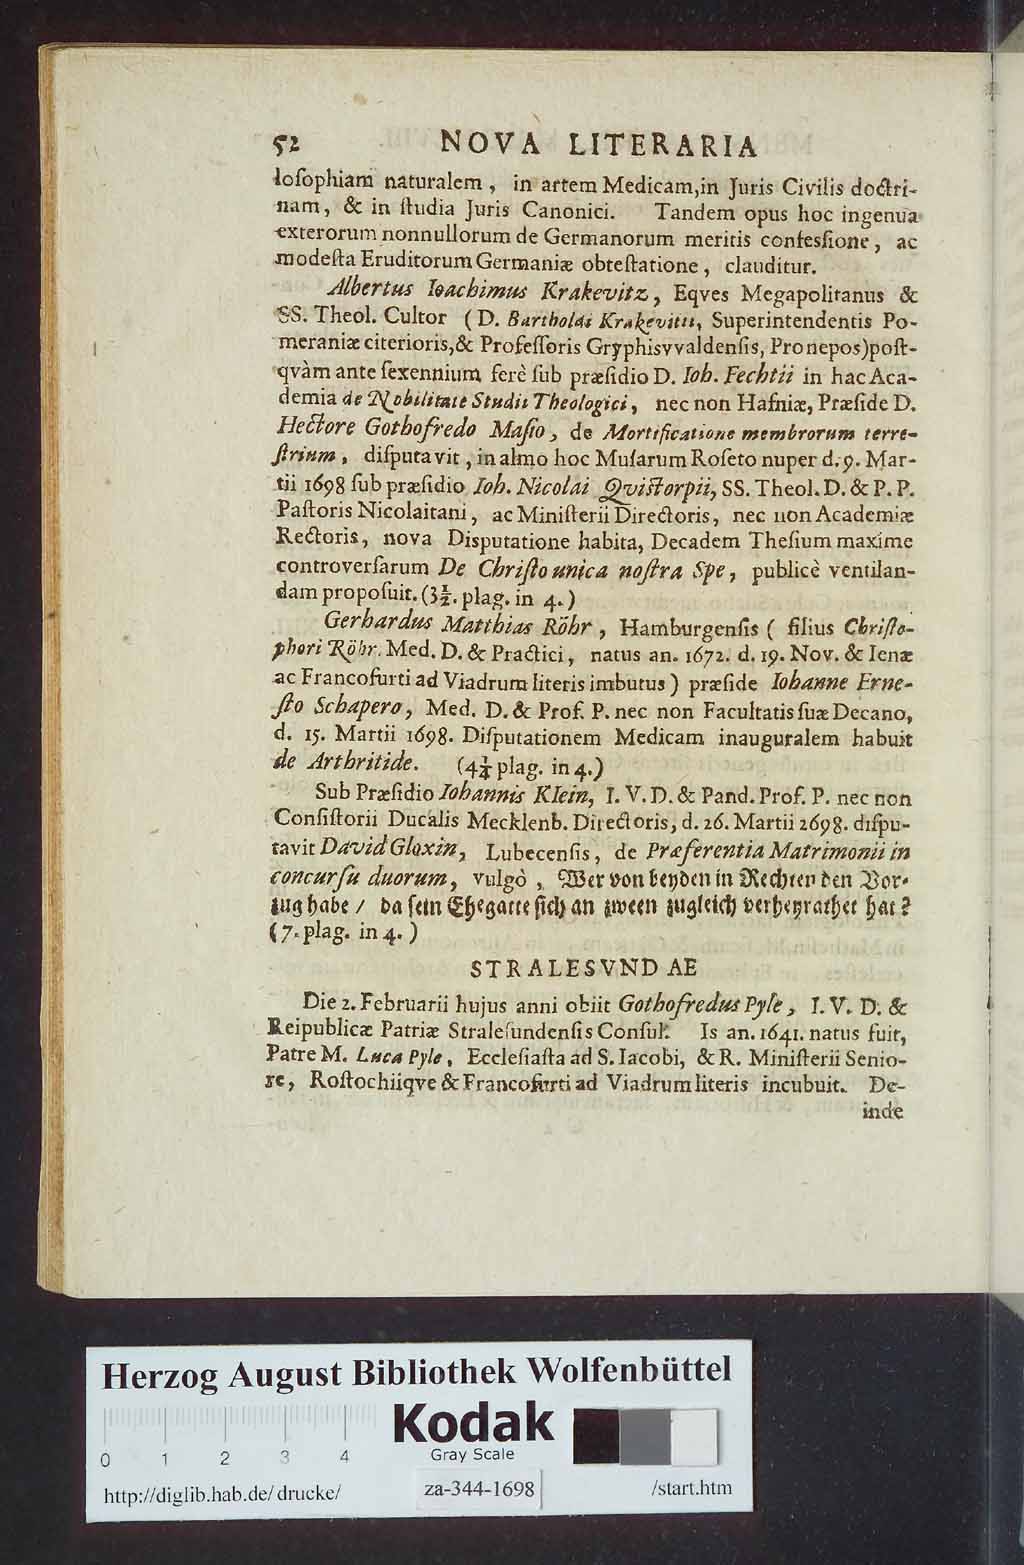 52 NOVA LITERARIA
loſophiam naturalem, in artem Medicam, in Juris Civilis doctri-
nam, & in ſtudia Juris Canonici. Tandem opus hoc ingenua
exterorum nonnullorum de Germanorum meritis confeſſione, ac
modeſta Eruditorum Germaniæ obteſtatione, clauditur.
Albertus Ioachimus Krakevitz, Eqves Megapolitanus &
SS. Theol. Cultor (D. Bartholdi Krakevitii, Superintendentis Po-
meraniæ citerioris, & Profeſſoris Gryphisvvaldenſis, Pronepos) poſt-
qvàm ante ſexennium ferè ſub præſidio D. Ioh. Fechtii in hac Aca-
demia de Nobilitate Studii Theologici, nec non Hafniæ, Præſide D.
Hectore Gothofredo Maſio, de Mortificatione membrorum terre-
ſtrium, diſputavit, in almo hoc Muſarum Roſeto nuper d. 9. Mar-
tii 1698 ſub præſidio Ioh. Nicolai Qviſtorpii, SS. Theol. D. & P. P.
Paſtoris Nicolaitani, ac Miniſterii Directoris, nec non Academiæ
Rectoris, nova Disputatione habita, Decadem Theſium maxime
controverſarum De Chriſto unica noſtra Spe, publicè ventilan-
dam propoſuit. (3½. plag. in 4.)
Gerhardus Matthias Röhr, Hamburgenſis (filius Chriſto-
phori Röhr. Med. D. & Practici, natus an. 1672. d. 19. Nov. & Ienæ
ac Francofurti ad Viadrum literis imbutus) præſide Iohanne Erne-
ſto Schapero, Med. D. & Prof. P. nec non Facultatis ſuæ Decano,
d. 15. Martii 1698. Diſputationem Medicam inauguralem habuit
de Arthritide. (4½ plag. in 4.)
Sub Præſidio Iohannis Klein, I. V. D. & Pand. Prof. P. nec non
Conſiſtorii Ducalis Mecklenb. Directoris, d. 26. Martii 2698. diſpu-
tavit David Gloxin, Lubecenſis, de Præferentia Matrimonii in
concurſu duorum, vulgò, Wer von beyden in Rechten den Vor-
zug habe / da ſein Ehegatte ſich an zween zugleich verheyrathet hat?
(7. plag. in 4.)
STRALESVNDAE
Die 2. Februarii hujus anni obiit Gothofredus Pyle, I. V. D. &
Reipublicæ Patriæ Straleſundenſis Conſul. Is an. 1641. natus fuit,
Patre M. Luca Pyle, Eccleſiaſta ad S. Iacobi, & R. Miniſterii Senio-
re, Roſtochiiqve & Francofurti ad Viadrum literis incubuit. De-
inde
Herzog August Bibliothek Wolfenbüttel
Kodak
Gray Scale
0 1 2 3 4
http://diglib.hab.de/drucke/ za-344-1698 /start.htm